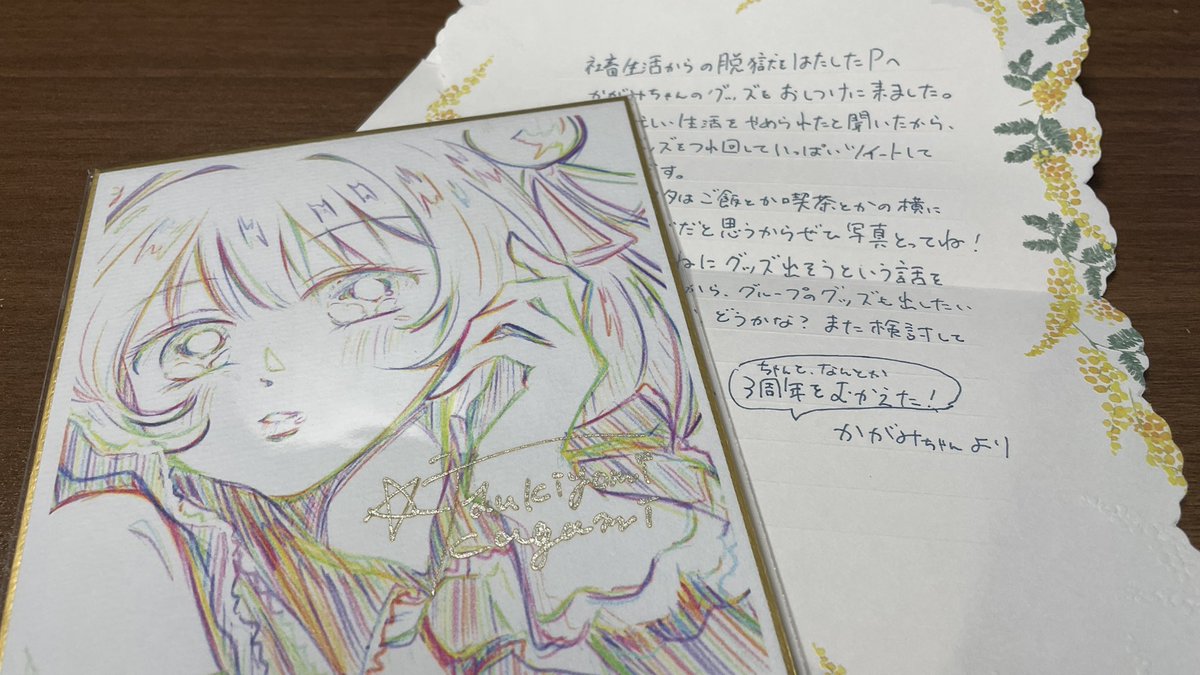 社畜生活からの脱獄をはたしたPへ
かがみちゃんのグッズを おしつけに来ました。
しい生活をやめられたと聞いたから、
ズをつれ回していっぱいツイートして
す。
はご飯とか喫茶とかの横に
だと思うからぜひ写真とってね!
にグッズ出そうという話を
から、グループのグッズを出したい
どうかな?また検討して
ちゃんと、なんとか
3周年をむかえた!
かがみちゃんより
☆Tsukiyomi
Kagami